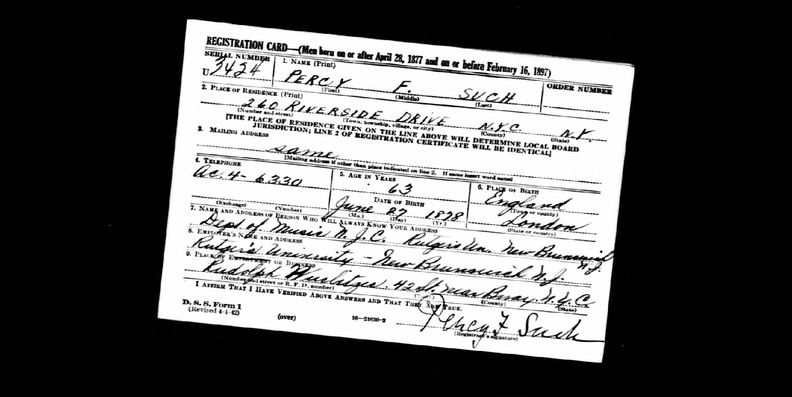 REGISTRATION CARD—(Men born on or after April 28, 1877 and on or before February 16, 1897)
SERIAL NUMBER 1. NAME (Print) ORDER NUMBER
U 3424 PERCY F. SUCH
(First) (Middle) (Last)
2. PLACE OF RESIDENCE (Print)
260 RIVERSIDE DRIVE N.Y.C. N.Y.
(Number and street) (Town, township, village, or city) (County) (State)
[THE PLACE OF RESIDENCE GIVEN ON THE LINE ABOVE WILL DETERMINE LOCAL BOARD
JURISDICTION; LINE 2 OF REGISTRATION CERTIFICATE WILL BE IDENTICAL]
3. MAILING ADDRESS
same
[Mailing address if other than place indicated on line 2. If same insert word same]
4. TELEPHONE 5. AGE IN YEARS 6. PLACE OF BIRTH
Ac. 4-6330 63 England
DATE OF BIRTH (Town or county)
June 27 1878 London
(Exchange) (Number) (Mo.) (Day) (Yr.) (State or country)
7. NAME AND ADDRESS OF PERSON WHO WILL ALWAYS KNOW YOUR ADDRESS
Dept of Music N.J.C. Rutgers Un. New Brunswick N.J.
8. EMPLOYER'S NAME AND ADDRESS
Rutgers University - New Brunswick N.J.
9. PLACE OF EMPLOYMENT OR BUSINESS
Rudolph Wurlitzer 42d St near Bway N.Y.C
(Number and street or R. F. D. number) (County) (State)
I AFFIRM THAT I HAVE VERIFIED ABOVE ANSWERS AND THAT THEY ARE TRUE.
D. S. S. Form 1
(Revised 4-1-42) (over) 16—21630-2 Percy F Such
(Registrant's signature)